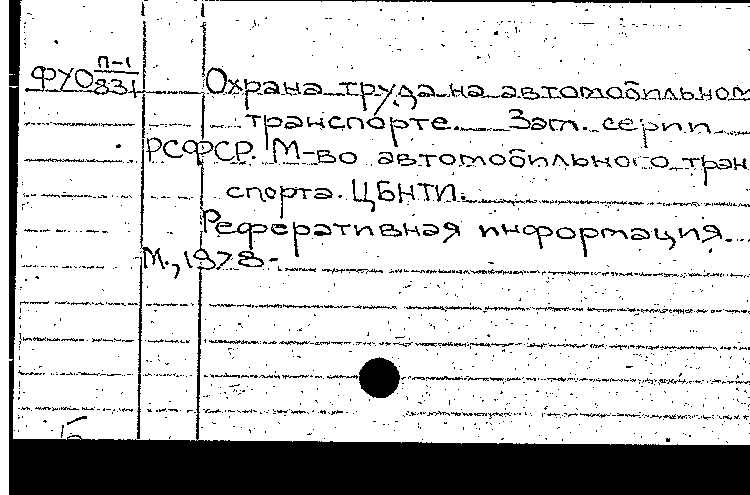 ФУО П-1/831 Охрана труда на автомобильном
транспорте. Заг. серии
РСФСР. М-во автомобильного тран
спорта. ЦБНТИ.
Реферативная информация.
М., 1978-